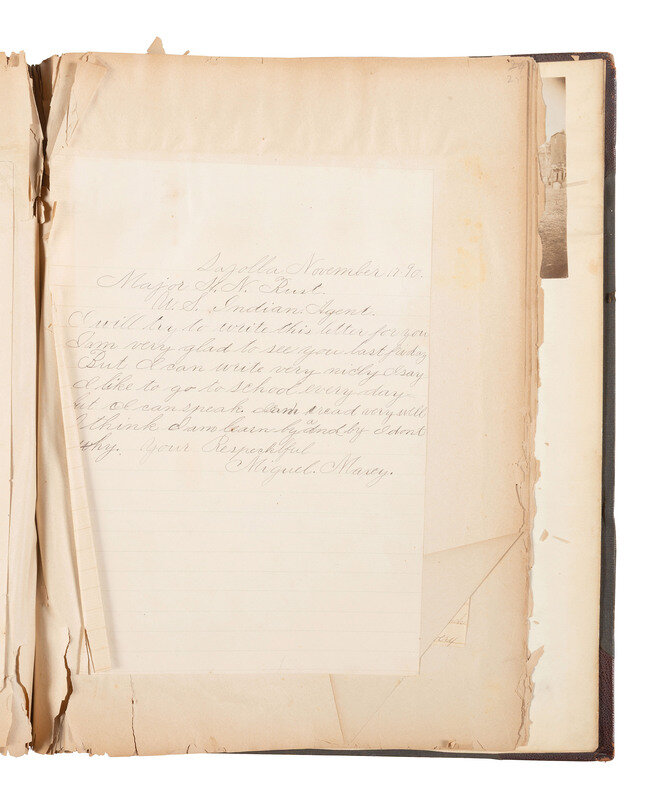 Lajolla November 12. 90.
Major H. N. Rust
U. S. Indian Agent.
I will try to write this letter for you
I am very glad to see you last friday
But I can write very nicly I say
I like to go to school every day
but I can speak. I am tread very well
I think I am learn by and by I dont
why. your Respecktful
Miguel. Maxey.